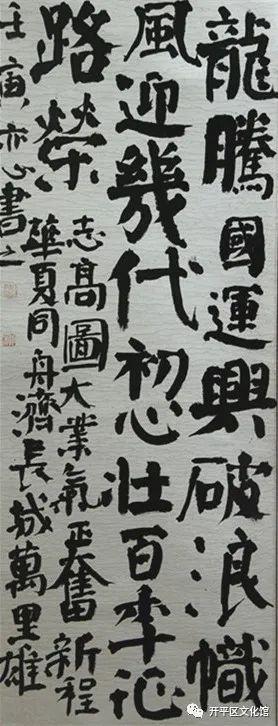 龍騰國運興破浪幟
風迎幾代初心壯百秊征
路榮
志高圖大業氣正奮新程
華夏同舟濟長城萬里雄
壬寅亦心書之
开平区文化馆